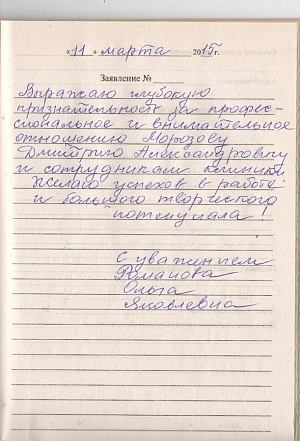 «11» марта 2015г.
Заявление №
Выражаю глубокую
признательность за профес-
сиональное и внимательное
отношению Морозову
Дмитрию Александровичу
и сотрудникам клиники
Желаю успехов в работе
и большого творческого
потенциала!
С уважением
Романова
Ольга
Яковлевна